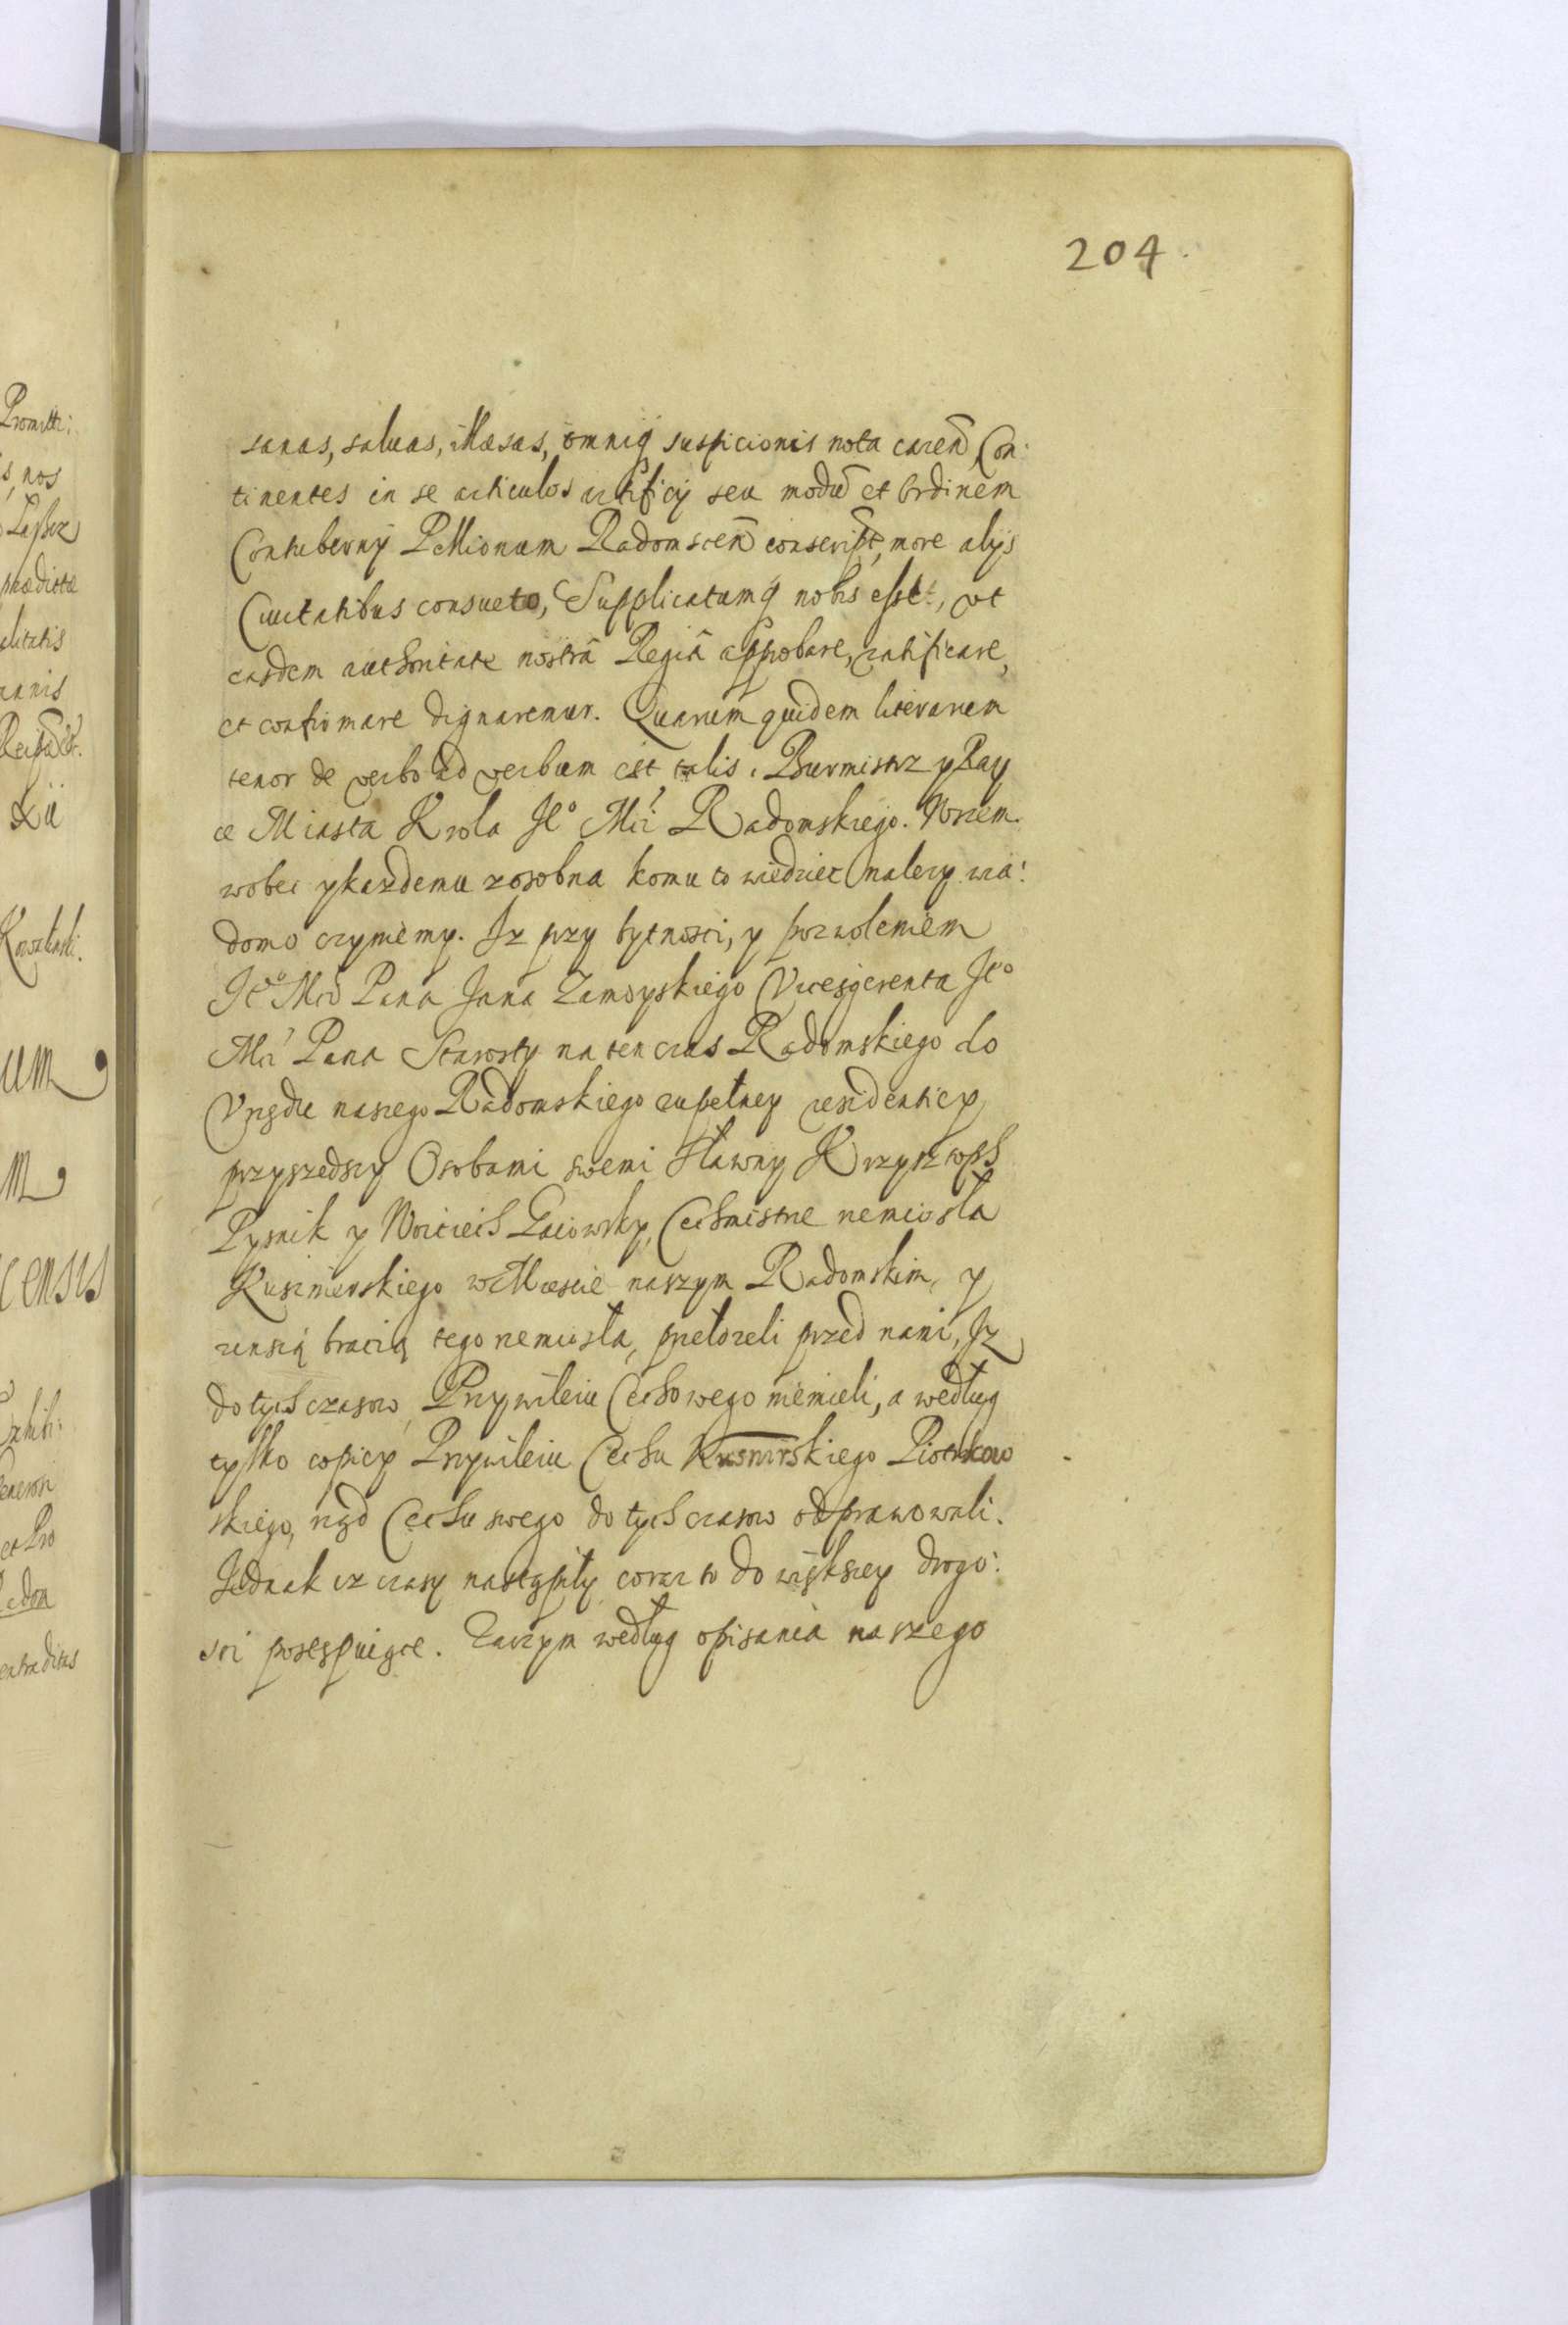 204.
sanas, saluas, illæsas, omniq suspicionis nota careñ, Con:
tinentes in se articulos artificij seu modũ et Ordinem
Contubernij Pellionum Radomscen̄ conscript, more alijs
Ciuitatibus consueto, Supplicatumq nobis esset, vt
easdem authoritate nostrâ Regiâ approbare, ratificare,
et confirmare dignaremur. Quarum quidem literarum
tenor de verbo ad verbum est talis. Burmistrz y Ray
ce Miasta Krola Je° Mći Radomskiego. Wszem.
wobec y kazdemu zosobna komu to wiedziec nalezy wia:
domo czyniemy. Iz przy bytnosci, y pozwoleniem
Je° Mći Pana Jana Zamoyskiego Vicesgerenta Je°
Mći Pana Starosty na ten czas Radomskiego do
Vrzędu naszego Radomskiego zupełney residentiey
przyszedszy Osobami swemi Sławny Krzysztoph
Pysnik y Woiciech Łaiowsky, Cechmistrze rzemiosła
Kusznierskiego w Miescie naszym Radomskim, y
zinszą bracią tego rzemiosła, przełozeli przed nami, Iz
do tych czasow, Przywileiu Cechowego niemieli, a według
tylko copiey Przywileiu Cechu Kusnirskiego Piotrkow
skiego, rząd Cechu swego do tych czasow odprawowali.
Jednak iz czasy nastąpiły coraz to do większey drogo:
sci postępuiące. Zaczym według opisania naszego
Promitti:
s, nos
prædictæ
um,
m,
censis